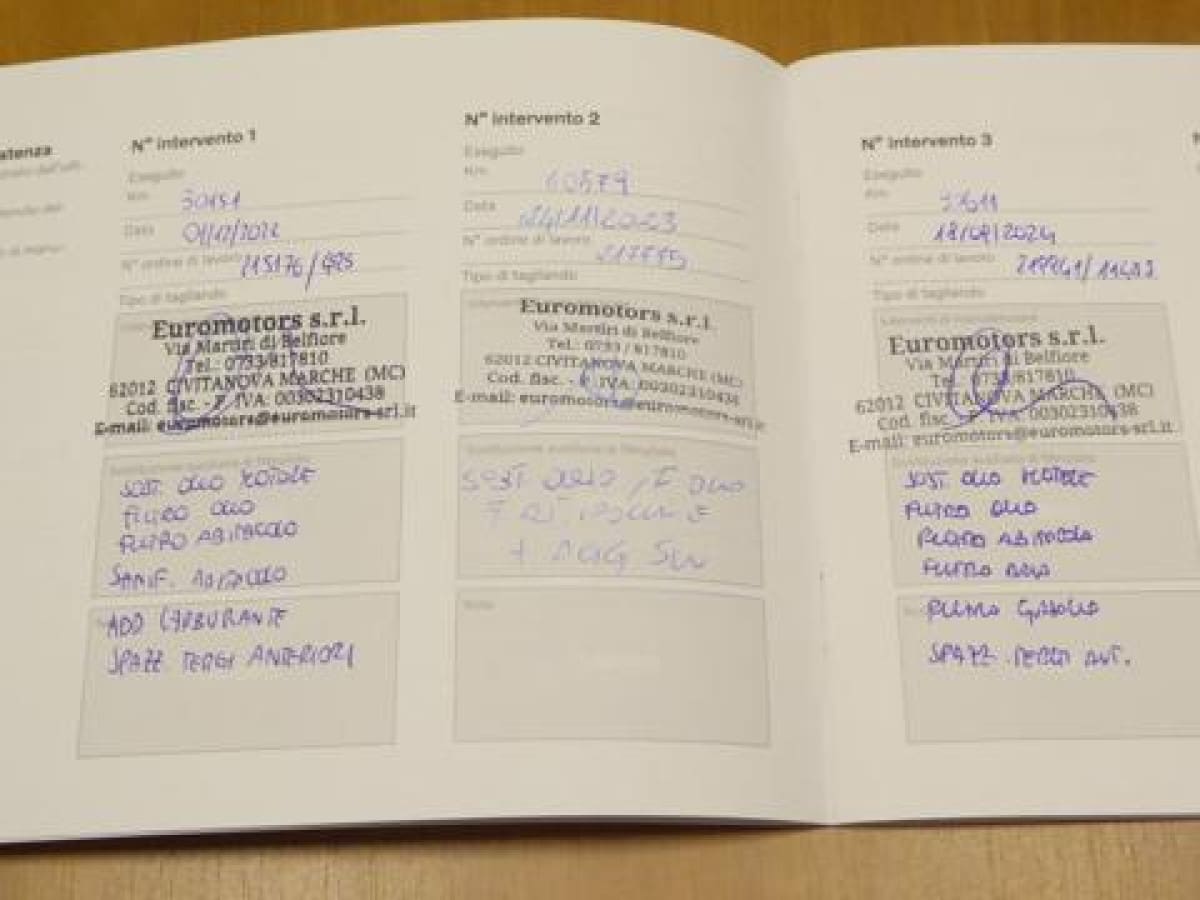 N° intervento 1
Eseguito
Km 30151
Data 01/12/2022
N° ordine di lavoro 115176/495
Tipo di tagliando
Euromotors s.r.l.
Via Martiri di Belfiore
Tel.: 0733/817810
62012 CIVITANOVA MARCHE (MC)
Cod. fisc. - P. IVA: 00302310438
E-mail: euromotors@euromotors-srl.it
SOST. OLIO MOTORE
FILTRO OLIO
FILTRO ABITACOLO
SANIF. ABITACOLO
ADD CARBURANTE
SPAZZ TERGI ANTERIORI
N° intervento 2
Eseguito
Km 60579
Data 24/11/2023
N° ordine di lavoro
Tipo di tagliando
Euromotors s.r.l.
Via Martiri di Belfiore
Tel.: 0733 / 817810
62012 CIVITANOVA MARCHE (MC)
Cod. fisc. - P. IVA: 00302310438
E-mail: euromotors@euromotors-srl.it
SOST OLIO, F OLIO
Note
N° intervento 3
Eseguito
Km
Data 18/09/2024
N° ordine di lavoro
Tipo di tagliando
Euromotors s.r.l.
Via Martiri di Belfiore
Tel. 0733/817810
62012 CIVITANOVA MARCHE (MC)
Cod. fisc. - P. IVA: 00302310438
E-mail: euromotors@euromotors-srl.it
SOST. OLIO MOTORE
FILTRO OLIO
FILTRO ABITACOLO
FILTRO ARIA
FILTRO GASOLIO
SPAZZ. TERGI ANT.